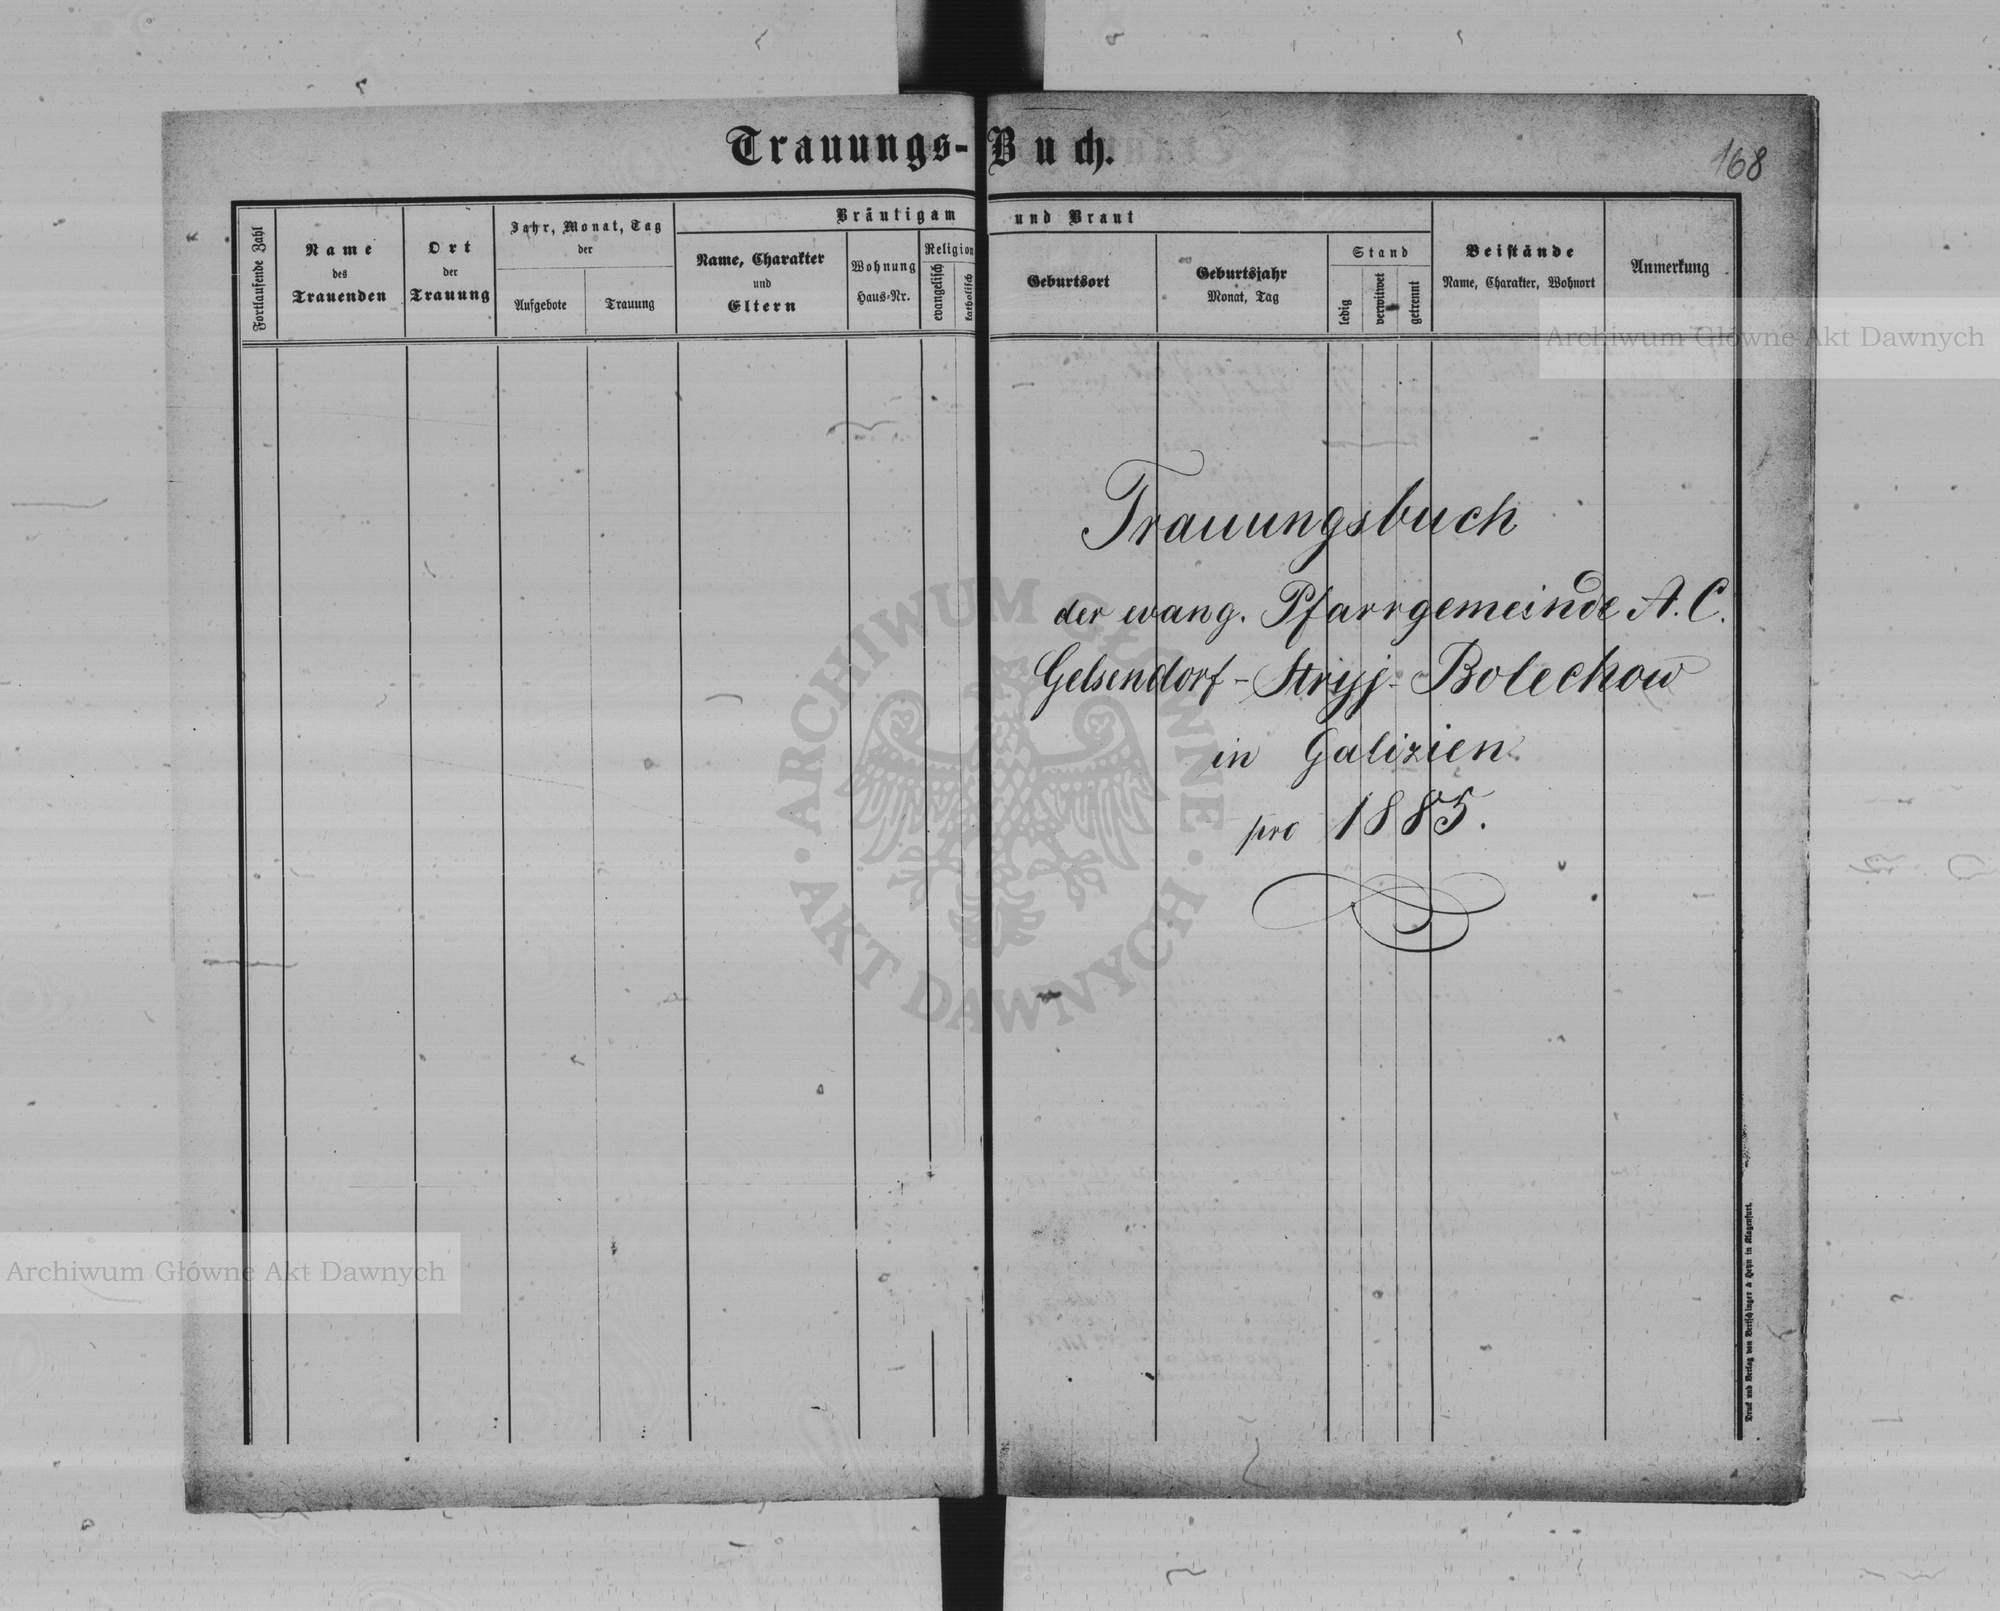 Trauungs-Buch.
168
Fortlaufende Zahl
Name
des
Trauenden
Ort
der
Trauung
Jahr, Monat, Tag
der
Aufgebote
Trauung
Bräutigam und Braut
Name, Charakter
und
Eltern
Wohnung
Haus-Nr.
Religion
evangelisch
katholisch
Geburtsort
Geburtsjahr
Monat, Tag
Stand
ledig
verwitwet
getrennt
Beistände
Name, Charakter, Wohnort
Anmerkung
Archiwum Główne Akt Dawnych
Trauungsbuch
der evang. Pfarrgemeinde A. C.
Gelsendorf - Stryj - Bolechow
in Galizien
pro 1885.
ARCHIWUM GŁÓWNE
AKT DAWNYCH
Archiwum Główne Akt Dawnych
Druck und Verlag von Bertschinger & Heyn in Klagenfurt.